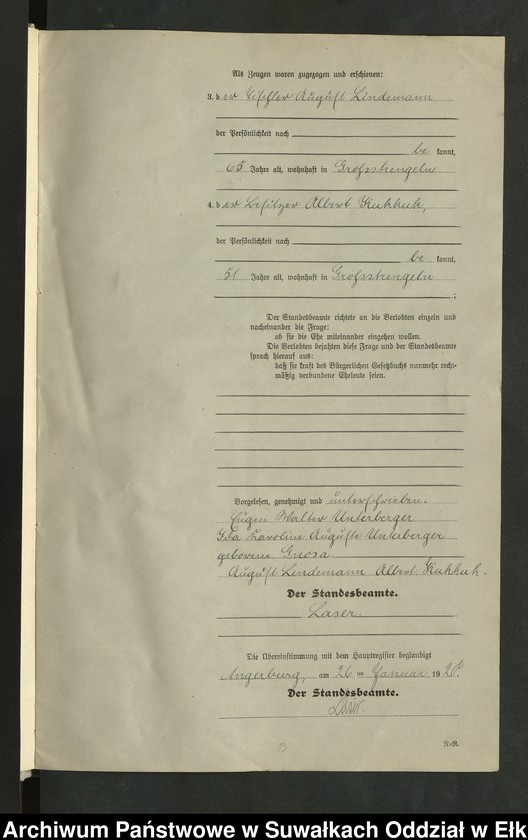 Als Zeugen waren zugezogen und erschienen:
3. der Tischler August Lindemann
der Persönlichkeit nach
be kannt,
65 Jahre alt, wohnhaft in Grossstrengeln
4. der Besitzer Albert Kukkuk,
der Persönlichkeit nach
be kannt,
51 Jahre alt, wohnhaft in Grossstrengeln
;
Der Standesbeamte richtete an die Verlobten einzeln und
nacheinander die Frage:
ob sie die Ehe miteinander eingehen wollen.
Die Verlobten bejahten diese Frage und der Standesbeamte
sprach hierauf aus:
daß sie kraft des Bürgerlichen Gesetzbuchs nunmehr recht-
mäßig verbundene Eheleute seien.
Vorgelesen, genehmigt und unterschrieben.
Eugen Walter Unterberger
Karoline Auguste Unterberger
geborene Gnosa
August Lindemann Albert Kukkuk.
Der Standesbeamte.
Laser.
Die Übereinstimmung mit dem Hauptregister beglaubigt
Angerburg, am 26 ten Januar 1920
Der Standesbeamte.
Laser
R.-R.
Archiwum Państwowe w Suwałkach Oddział w Ełku